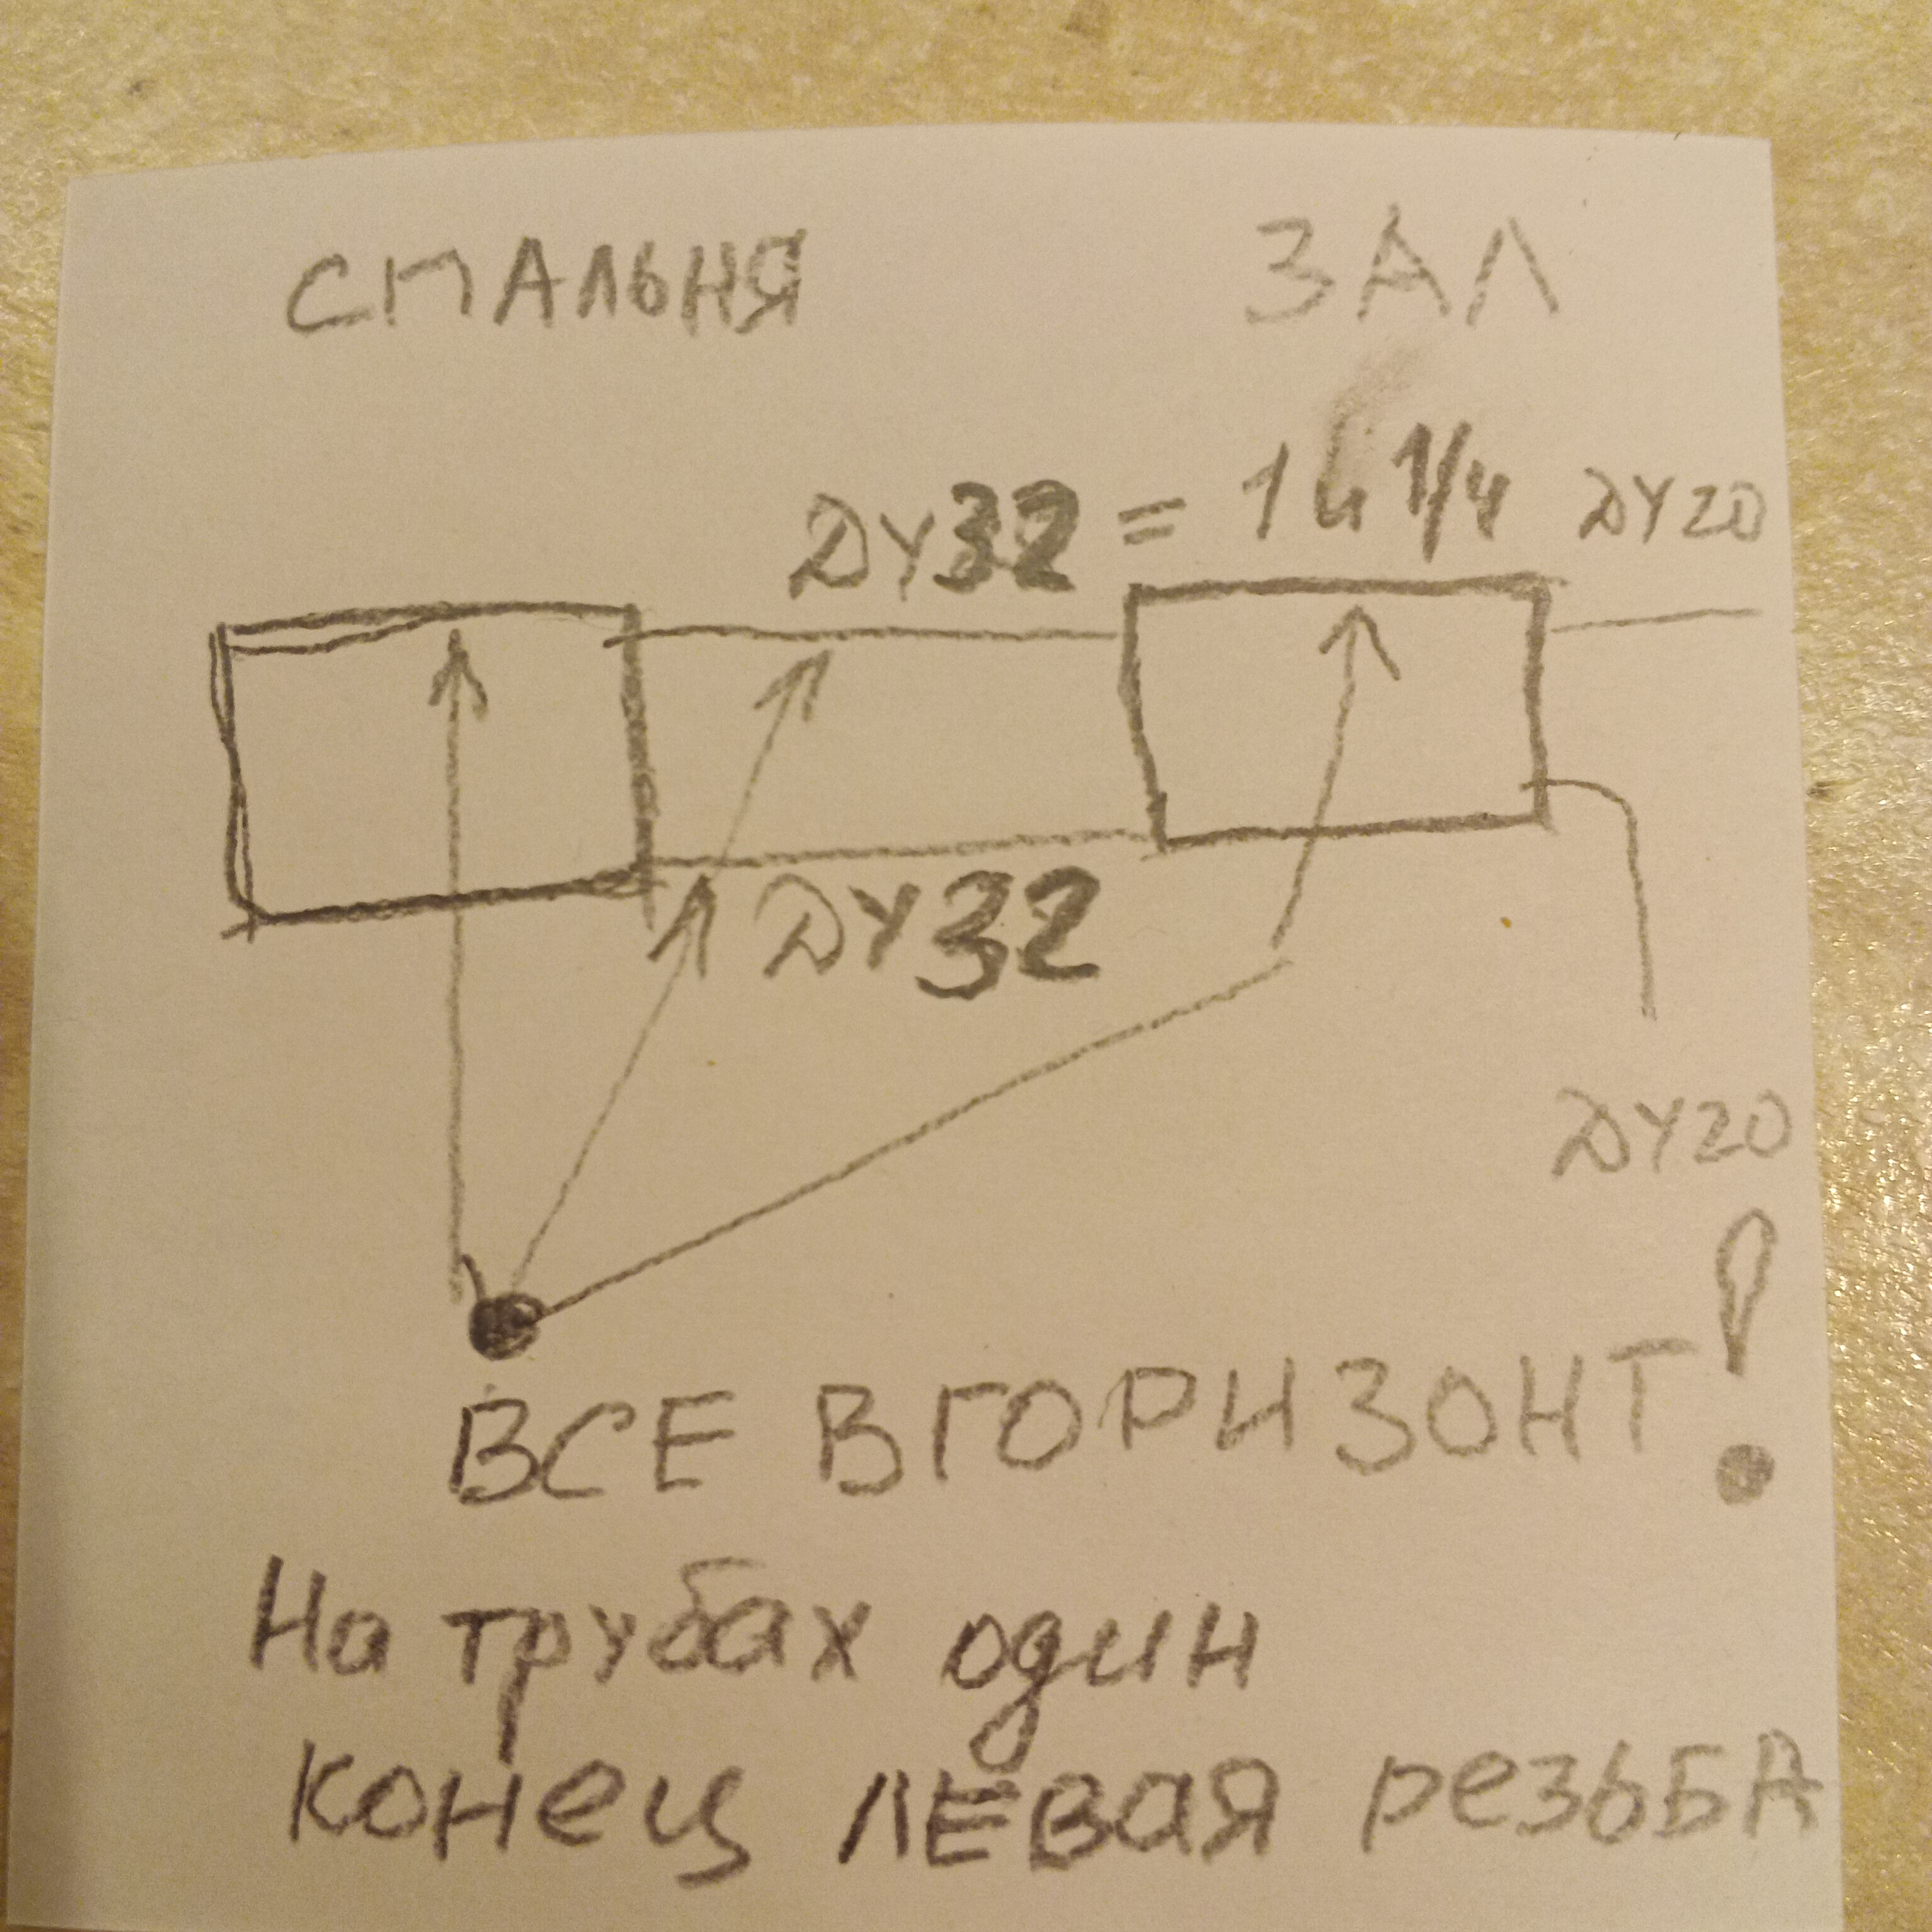 СПАЛЬНЯ ЗАЛ
ДУ32 = 1 и 1/4 ДУ20
ДУ32
ДУ20
ВСЕ В ГОРИЗОНТ!
На трубах один
конец ЛЕВАЯ РЕЗЬБА